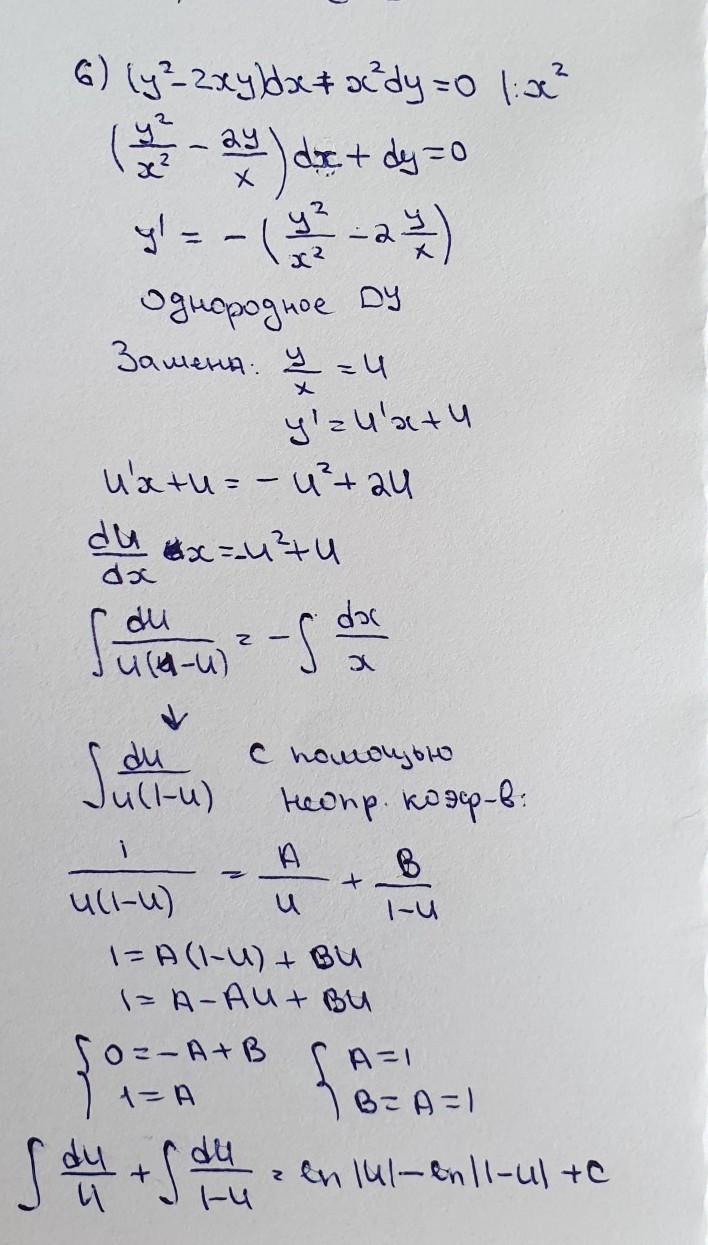 6) (y²-2xy)dx+x²dy=0 |:x²
(y²/x² - 2y/x)dx+dy=0
y' = -(y²/x² - 2 y/x)
Однородное ДУ
Замена: y/x = u
y'=u'x+u
u'x+u = -u²+2u
du/dx x=-u²+u
∫ du/u(1-u) = -∫ dx/x
↓
∫ du/u(1-u) с помощью
неопр. коэф-в:
1/u(1-u) = A/u + B/1-u
1=A(1-u)+Bu
1=A-Au+Bu
{0=-A+B {A=1
1=A B=A=1
∫ du/u + ∫ du/1-u = ln|u|-ln|1-u|+c